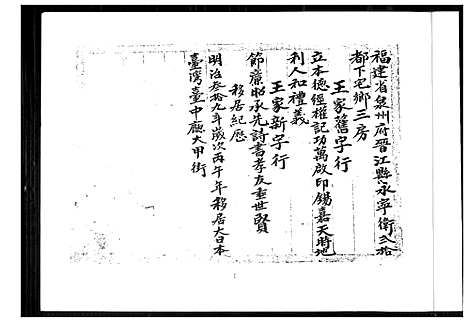 福建省泉州府晉江縣永寧衛弍拾
都下宅鄉三房
王家舊字行
立本德經權記功萬啟印錫嘉天時地
利人和禮義
王家新字行
節廉昭承先詩書孝友垂世賢
移居紀歷
明治叁拾九年歲次丙午年移居大日本
臺灣臺中廳大甲街